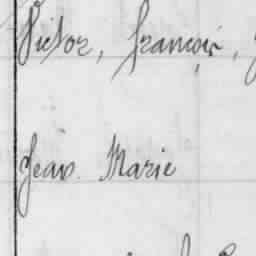 Victor, François,
Jean. Marie